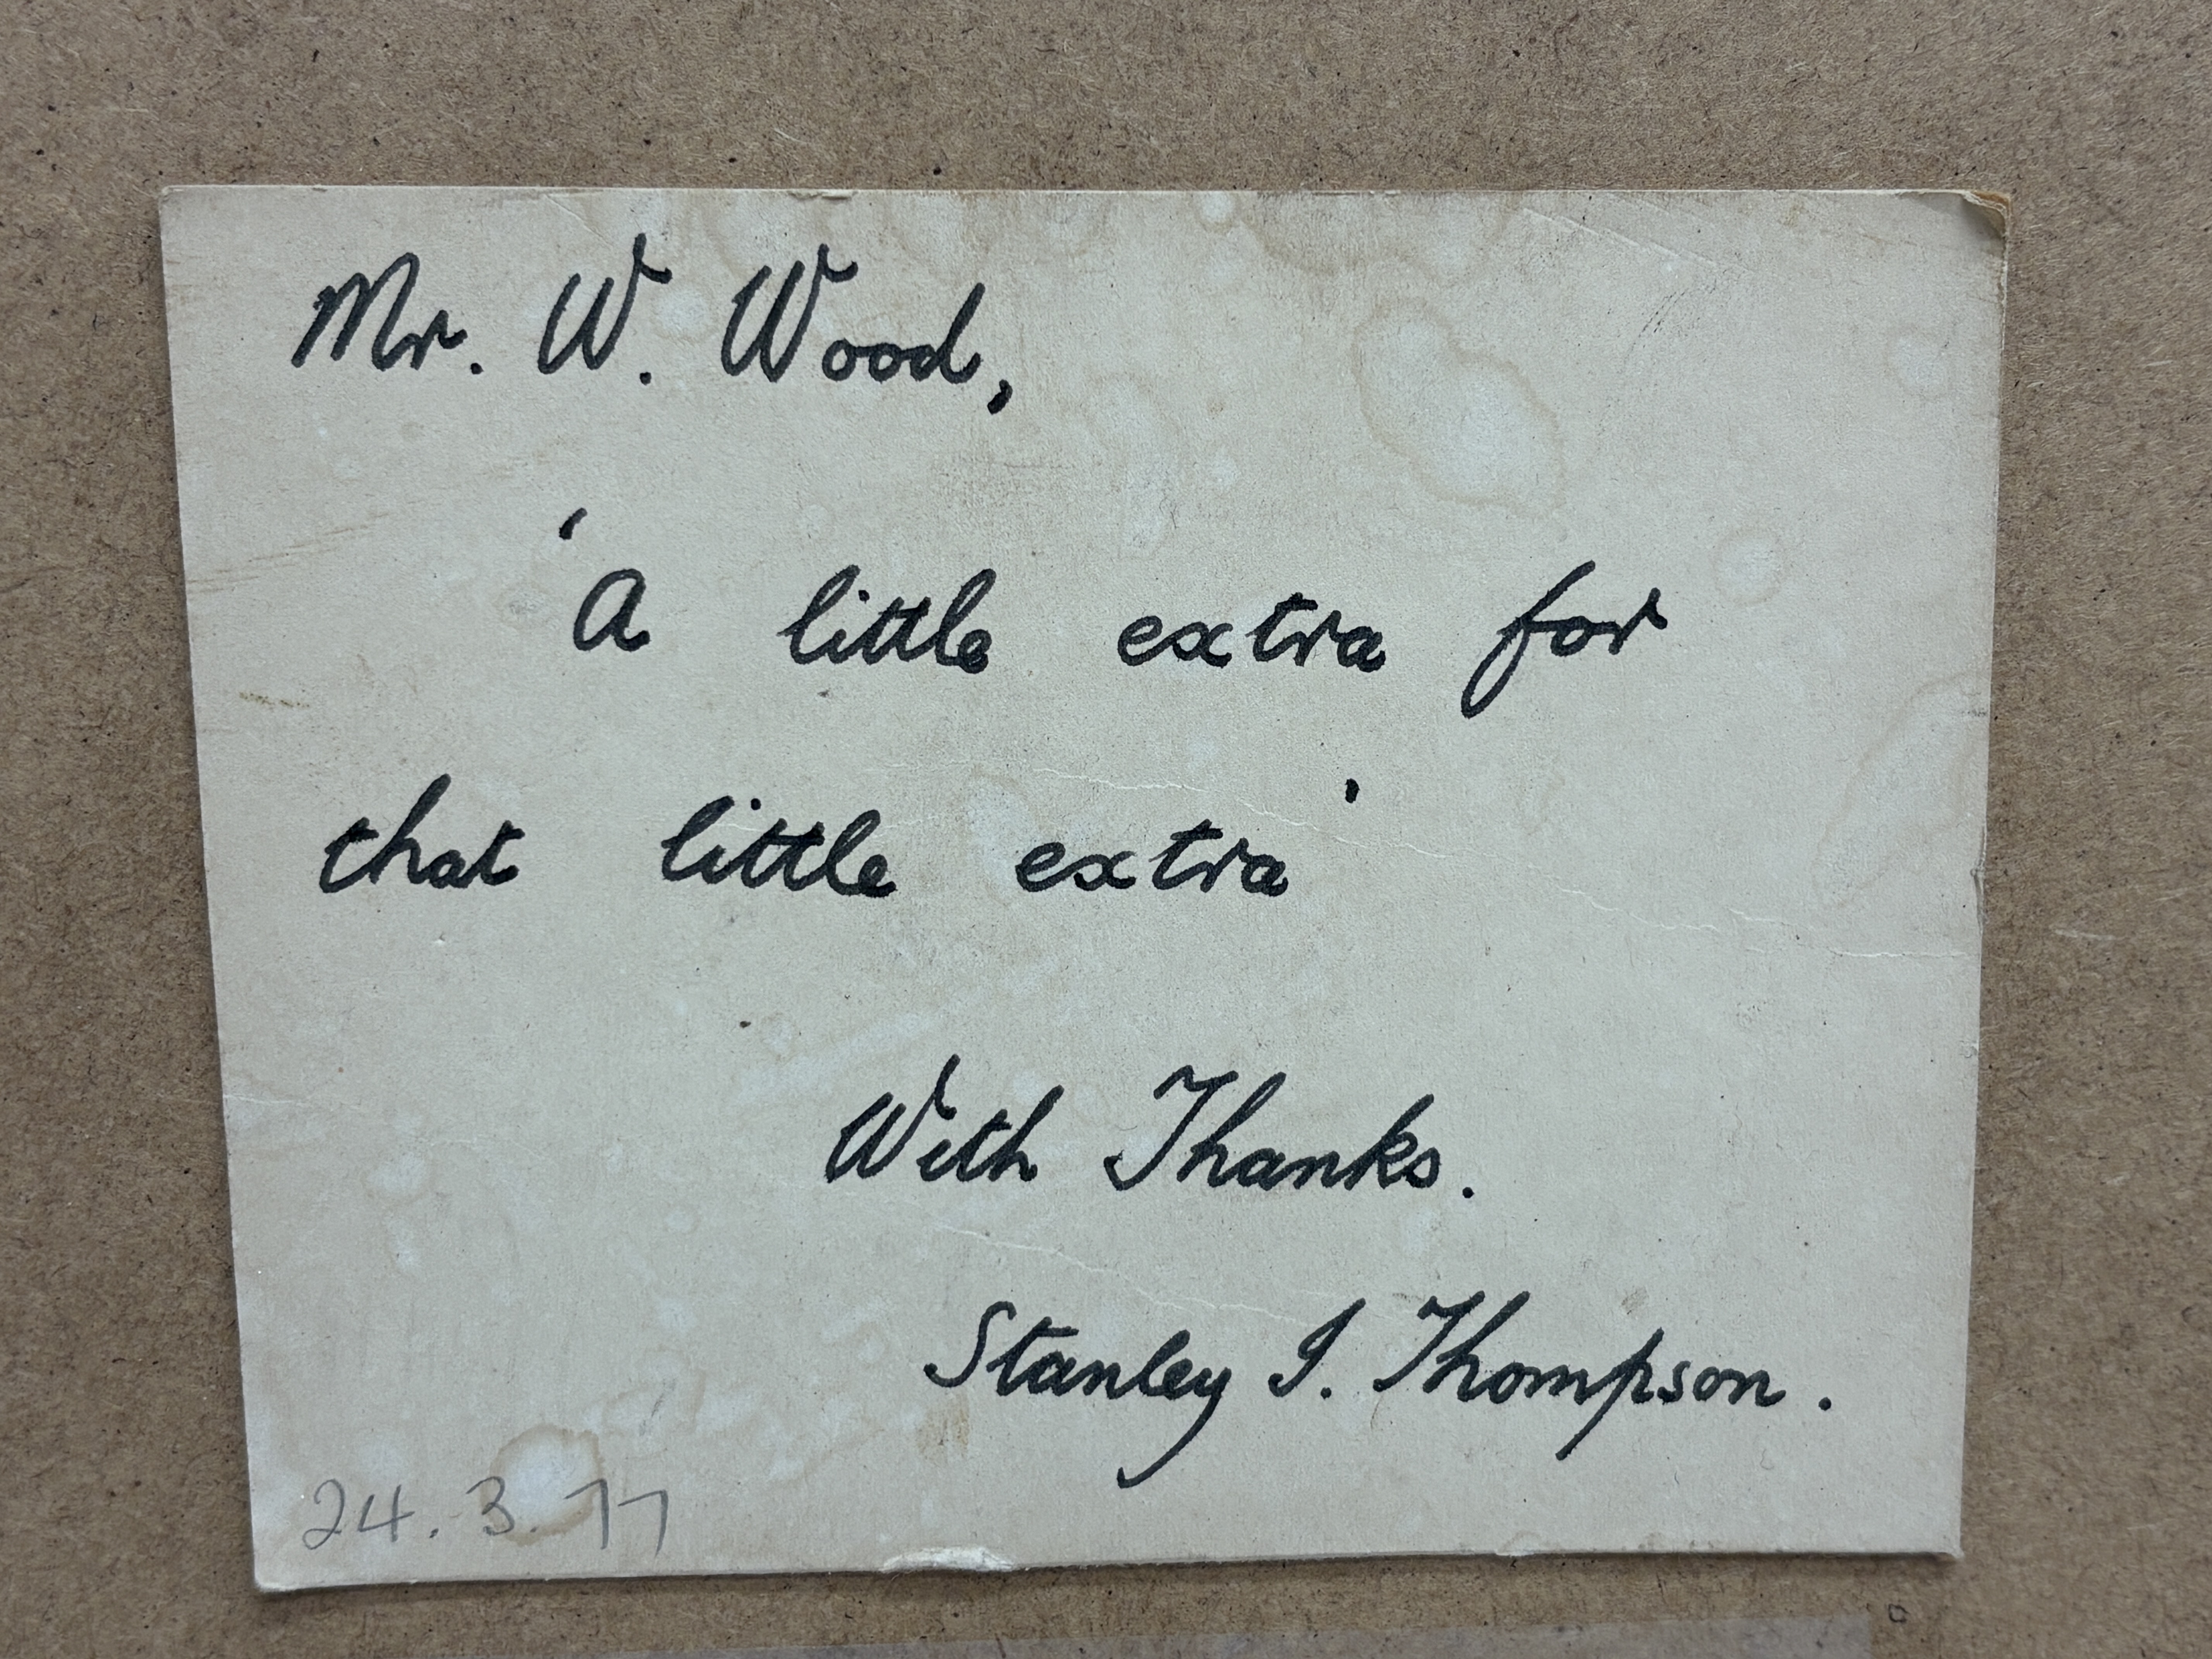 Mr. W. Wood,
'A little extra for
that little extra'
With Thanks.
Stanley I. Thompson.
24.3.77